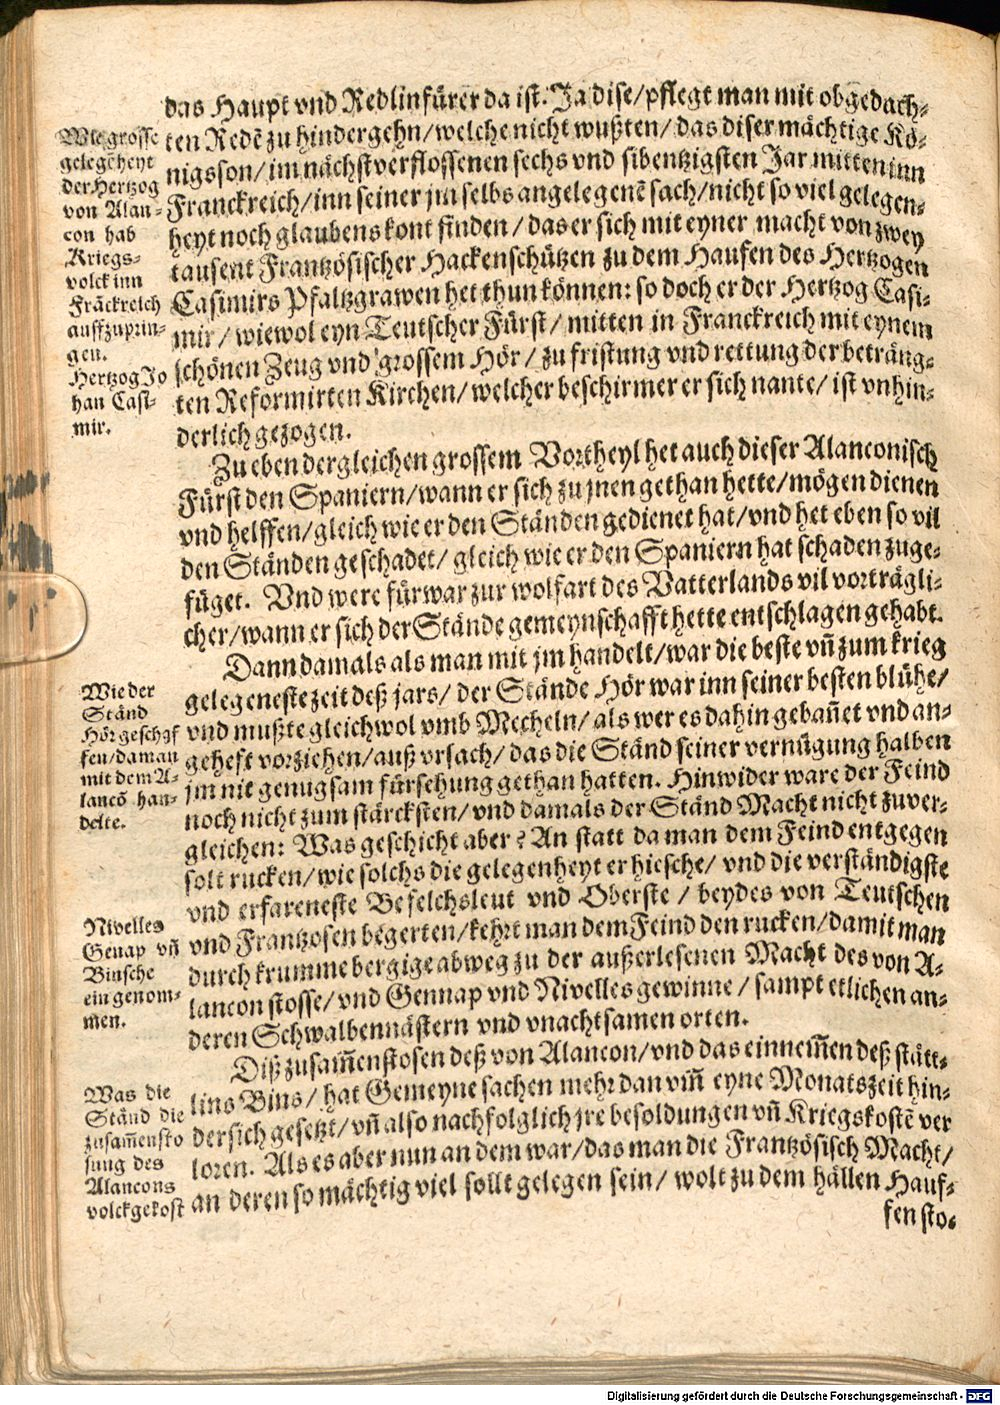 das Haupt vnd Redlinfürer da ist. Ja dise/pflegt man mit obgedach-
ten Redẽ zu hindergehn/welche nicht wußten/das diser mächtige Kö-
nigsson/im nächstverflossenen sechs vnd sibentzigsten Jar mitten inn
Franckreich/inn seiner jm selbs angelegenẽ sach/nicht so viel gelegen-
heyt noch glaubens kont finden/das er sich mit eyner macht von zwey
tausent Frantzösischer Hackenschützen zu dem Haufen des Hertzogen
Casimirs Pfaltzgrawen het thun können: so doch er der Hertzog Casi-
mir/wiewol eyn Teutscher Fürst/mitten in Franckreich mit eynem
schönen Zeug vnd grossem Hör/zu fristung vnd rettung der beträng-
ten Reformirten Kirchen/welcher beschirmer er sich nante/ist vnhin-
derlich gezogen.
Wie grosse
gelegẽheyt
der Hertzog
von Alan-
con hab
Kriegs-
volck inn
Frãckreich
auffzuprin-
gen.
Hertzog Jo
han Casi-
mir.
Zu eben dergleichen grossem Vortheyl het auch dieser Alanconisch
Fürst den Spaniern/wann er sich zu jnen gethan hette/mögen dienen
vnd helffen/gleich wie er den Ständen gedienet hat/vnd het eben so vil
den Ständen geschadet/gleich wie er den Spaniern hat schaden zuge-
füget. Vnd were fürwar zur wolfart des Vatterlands vil vorträgli-
cher/wann er sich der Stände gemeynschafft hette entschlagen gehabt.
Dann damals als man mit jm handelt/war die beste vñ zum krieg
gelegeneste zeit deß jars/der Stände Hör war inn seiner besten blühe/
vnd mußte gleichwol vmb Mecheln/als wer es dahin gebañet vnd an-
geheft vorziehen/auß vrsach/das die Ständ seiner vernügung halben
jm nit genugsam fürsehung gethan hatten. Hinwider ware der Feind
noch nicht zum stärcksten/vnd damals der Ständ Macht nicht zuver-
gleichen: Was geschicht aber? An statt da man dem Feind entgegen
solt rucken/wie solchs die gelegenheyt erhiesche/vnd die verständigste
vnd erfareneste Befelchsleut vnd Oberste/beydes von Teutschen
vnd Frantzosen begerten/kehrt man dem Feind den rucken/damit man
durch krumme bergige abweg zu der außerlesenen Macht des von A-
lancon stosse/vnd Gennap vnd Nivelles gewinne/sampt etlichen an-
deren Schwalbennästern vnd vnachtsamen orten.
Wie der
Ständ
Hör geschaf
fen/da man
mit dem A-
lancõ han-
delte.
Nivelles
Genap vñ
Binsche
eingenom-
men.
Diß zusam̃enstosen deß von Alancon/vnd das einnem̃en deß stätt-
lins Bins/hat Gemeyne sachen mehr dan vm̃ eyne Monatszeit hin-
dersich gesetzt/vñ also nachfolglich jre besoldungen vñ Kriegskostẽ ver
loren. Als es aber nun an dem war/das man die Frantzösisch Macht/
an deren so mächtig viel sollt gelegen sein/wolt zu dem hällen Hauf-
fen sto-
Was die
Ständ die
zusam̃ensto
sung des
Alancons
volck gekost
Digitalisierung gefördert durch die Deutsche Forschungsgemeinschaft - DFG